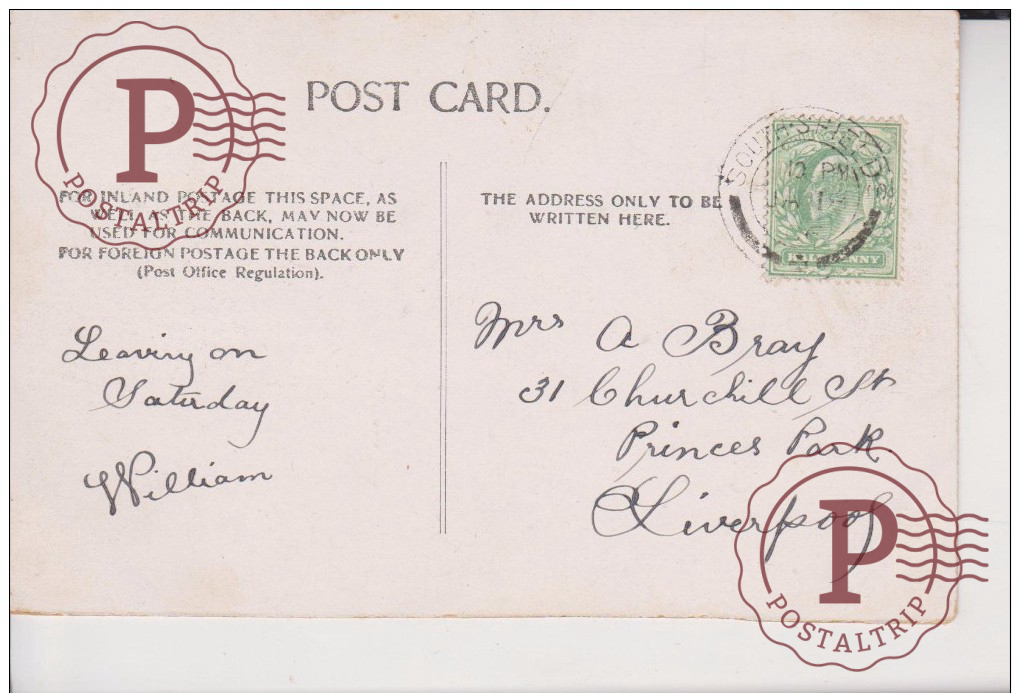 POST CARD.
FOR INLAND POSTAGE THIS SPACE, AS
WELL AS THE BACK, MAY NOW BE
USED FOR COMMUNICATION.
FOR FOREIGN POSTAGE THE BACK ONLY
(Post Office Regulation).
THE ADDRESS ONLY TO BE
WRITTEN HERE.
SOUTH SHIELDS
PM
Leaving on
Saturday
William
Mrs A Bray
31 Churchill St
Princes Park
Liverpool
P
POSTALTRIP
P
POSTALTRIP